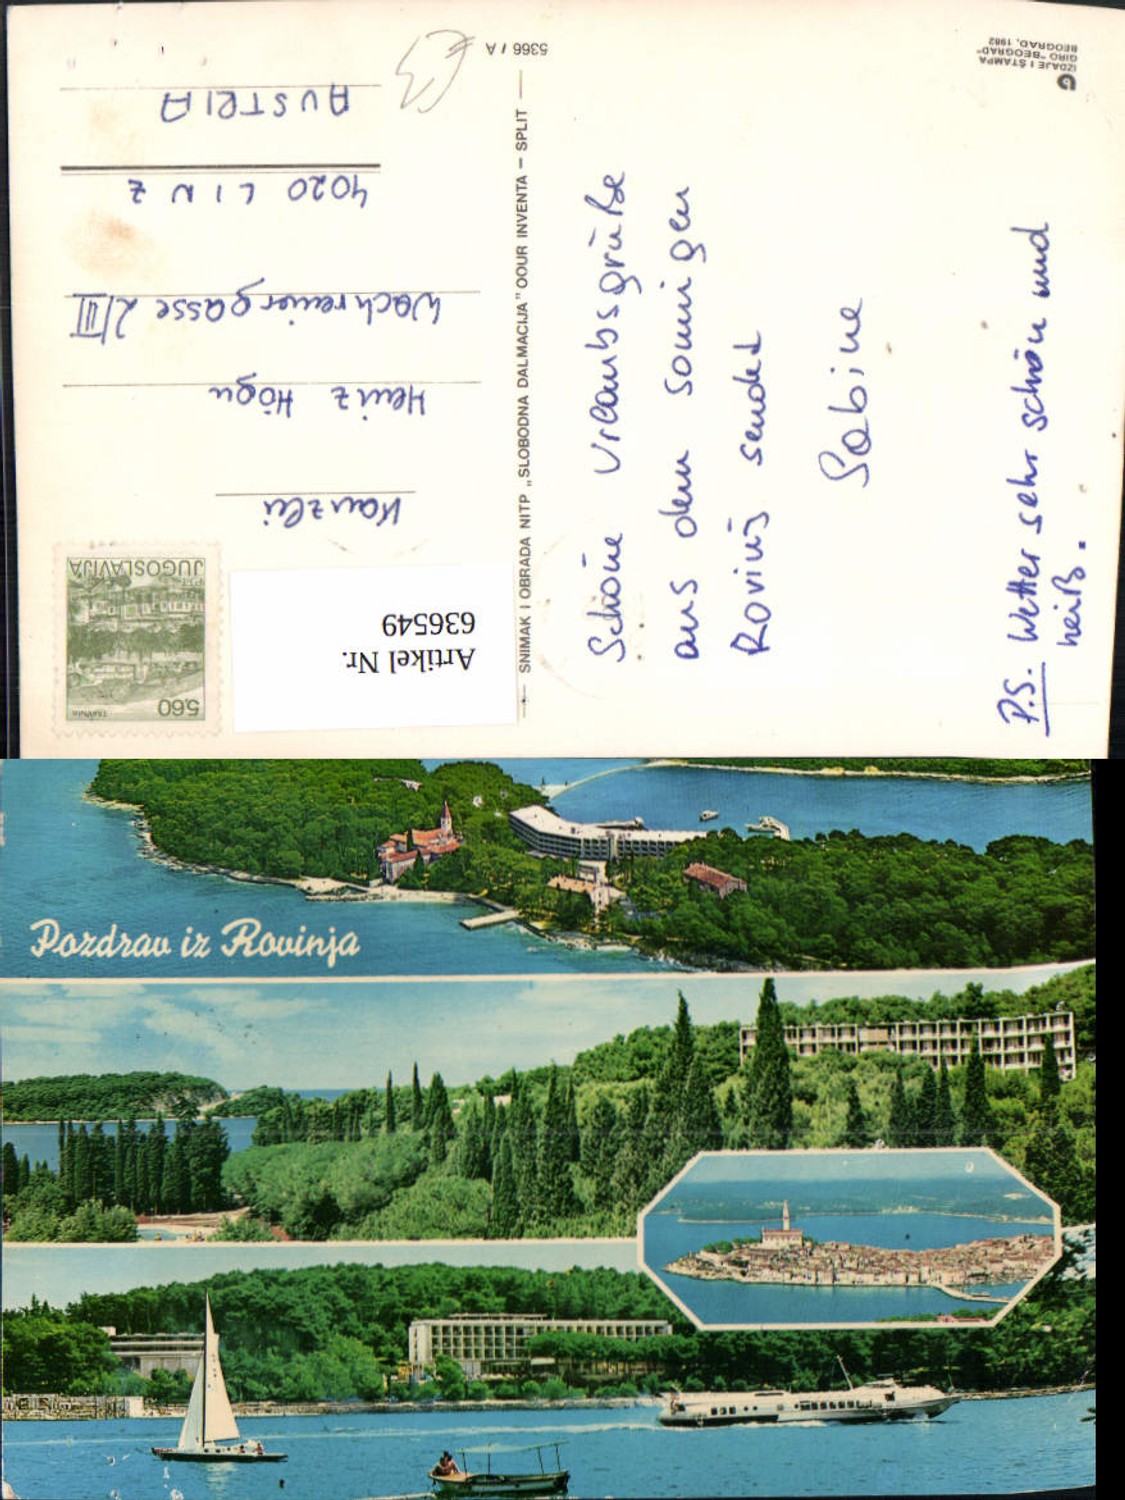 IZDAJE I ŠTAMPA
GIRO "BEOGRAD"
BEOGRAD, 1982
5366 / A
SNIMAK I OBRADA NITP „SLOBODNA DALMACIJA" OOUR INVENTA – SPLIT
Schöne Urlaubsgrüße
aus dem sonnigen
Rovinj sendet
Sabine
P.S. Wetter sehr schön und
heiß.
5,60
TRAVNIK
JUGOSLAVIJA
Artikel Nr.
636549
Kanzlei
Heinz Högn
Wachreinergasse 2/III
4020 LINZ
AUSTRIA
€3
Pozdrav iz Rovinja